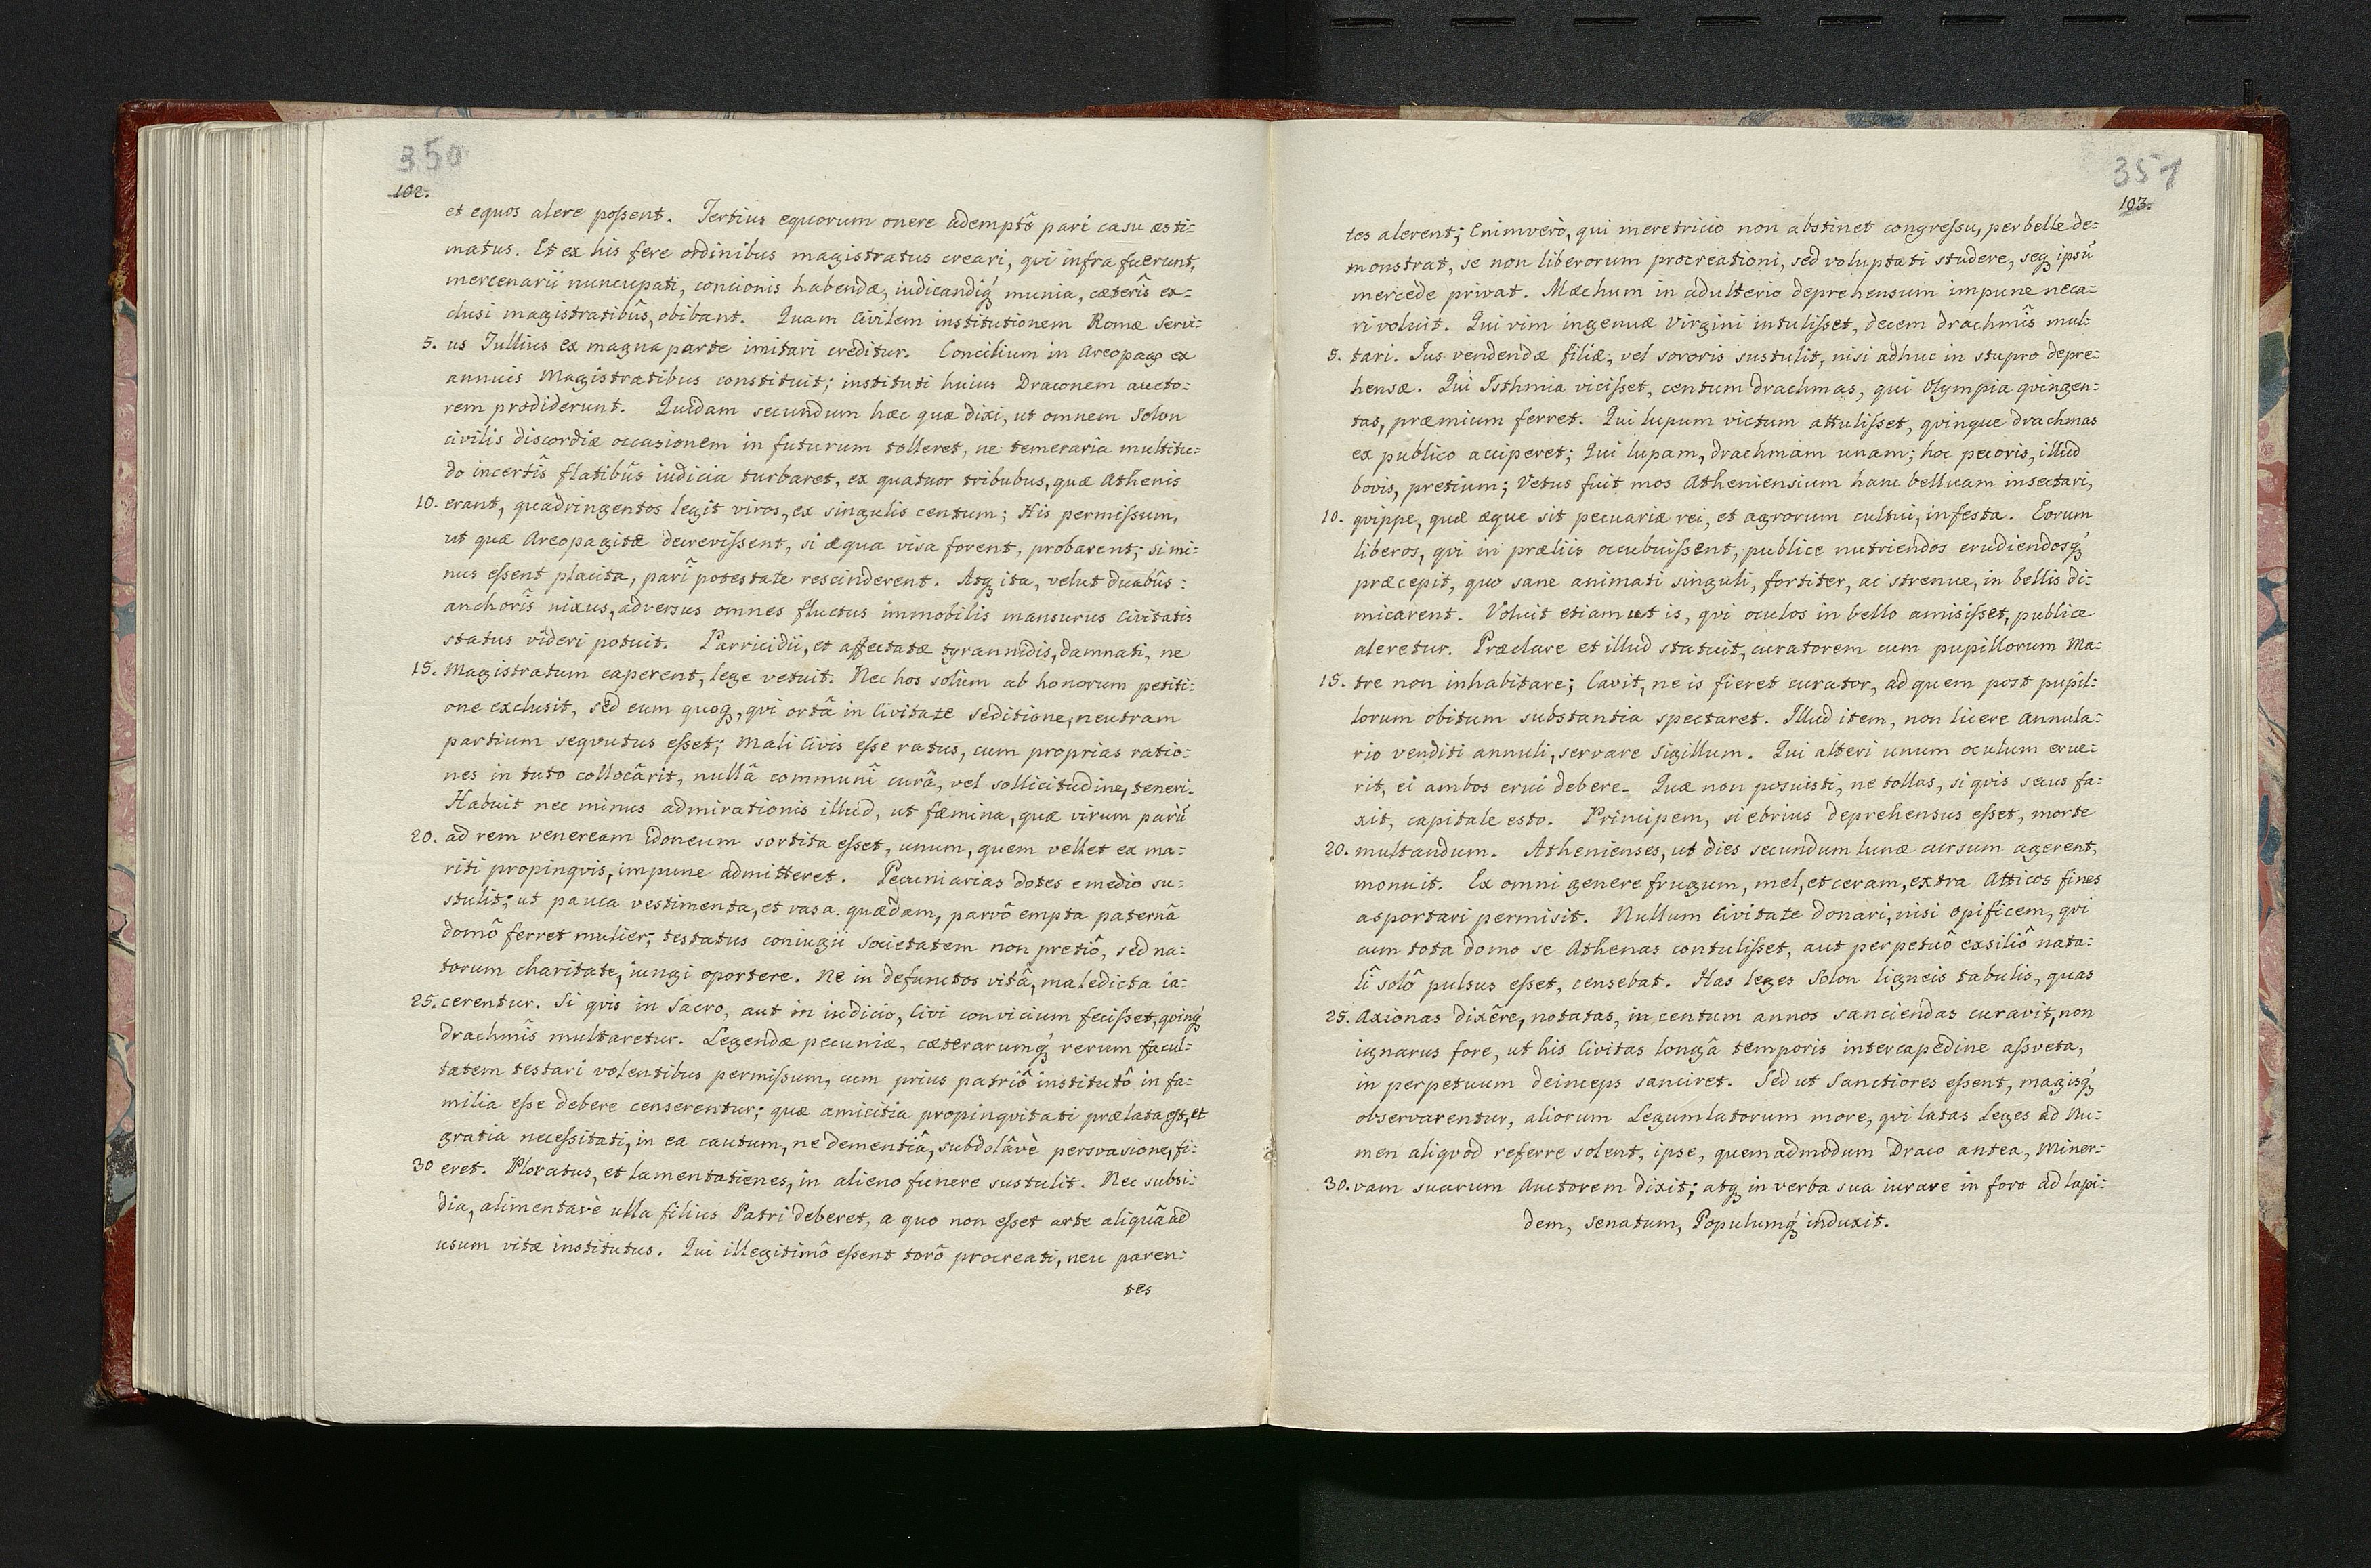 350
102.
et equos alere poſsent. Tertius equorum onere ademptô pari casu æsti:
matus. Et ex his fere ordinibus magistratus creari, qvi infra fuerunt,
mercenarii nuncupati, concionis habendæ, iudicandiq́ munia, cæterîs ex:
clusi magistratibûs, obibant. Quam Civilem institutionem Romæ Servi:
5. us Tullius ex magna parte imitari creditur. Concilium in Areopago ex
annuis Magistratibus constituit; instituti huius Draconem aucto:
rem prodiderunt. Quidam secundum hæc quæ dixi, ut omnem Solon
civilis discordiæ occasionem in futurum tolleret, ne temeraria multitu:
do incertîs flatibûs iudicia turbaret, ex quatuor tribubus, quæ Athenis
10. erant, quadringentos legit viros, ex singulis centum; His permiſsum,
ut quæ Areopagitæ decreviſsent, si æqua visa forent, probarent; si mi:
nus eſsent placita, parî potestate rescinderent. Atq ita, velut duabûs:
anchorîs nixus, adversus omnes fluctus immobilis mansurus Civitatis
status videri potuit. Parricidii, et affectatæ tyrannidis, damnati, ne
15. Magistratum caperent, lege vetuit. Nec hos solùm ab honorum petiti:
one exclusit, sed eum quoq, qvi ortâ in Civitate seditione, neutram
partium seqvutus eſset; Mali Civis eſse ratus, cum proprias ratio:
nes in tuto collocârit, nullâ communî curâ, vel sollicitudine, teneri.
Habuit nec minus admirationis illud, ut fæmina, quæ virum parũ
20. ad rem veneream idoneum sortita eſset, unum, quem vellet ex ma:
riti propinqvis, impune admitteret. Pecuniarias dotes e medio su:
stulit; ut pauca vestimenta, et vasa quædam, parvô empta paternâ
domô ferret mulier; testatus coniugii societatem non pretiô, sed na:
torum charitate, iungi oportere. Ne in defunctos vitâ, maledicta ia:
25. cerentur. Si qvis in Sacro, aut in iudicio, Civi convicium feciſset, qvinq́
drachmîs multaretur. Legendæ pecuniæ, cæterarumq́ rerum facul:
tatem testari volentibus permiſsum, cum prius patriô institutô in fa:
milia eſse debere censerentur; quæ amicitia propinqvitati prælata eſt, et
gratia neceſsitati, in ea cautum, ne dementiâ, subdolâvè persvasione, fi:
30 eret. Ploratus, et lamentationes, in alieno funere sustulit. Nec subsi:
dia, alimentavè ulla filius Patri deberet, a quo non eſset arte aliquâ ad
usum vitæ institutus. Qui illegitimô eſsent torô procreati, neu paren:
tes
351
103.
tes alerent; Enimverò, qui meretricio non abstinet congreſsu, perbelle de:
monstrat, se non liberorum procreationi, sed voluptati studere, seq ipsũ
mercede privat. Mæchum in adulterio deprehensum impune neca:
ri voluit. Qui vim ingenuæ Virgini intuliſset, decem drachmîs mul:
5. tari. Ius vendendæ filiæ, vel sororis sustulit, nisi adhuc in stupro depre:
hensæ. Qui Isthmia viciſset, centum drachmas, qui Olympia qvingen:
tas, præmium ferret. Qui lupum victum attuliſset, qvinque drachmas
ex publico acciperet; Qui lupam, drachmam unam; hoc pecoris, illud
bovis, pretium; Vetus fuit mos Atheniensium hanc belluam insectari,
10. qvippe, quæ æque sit pecuariæ rei, et agrorum cultui, infesta. Eorum
liberos, qvi in præliis occubuiſsent, publice nutriendos erudiendosq́
præcepit, quo sane animati singuli, fortiter, ac strenue, in bellis di:
micarent. Voluit etiam ut is, qvi oculos in bello amisiſset, publice
aleretur. Præclare et illud statuit, curatorem cum pupillorum Ma:
15. tre non inhabitare; Cavit, ne is fieret curator, ad quem post pupil:
lorum obitum substantia spectaret. Illud item, non licere Annula:
rio venditi annuli, servare sigillum. Qui alteri unum oculum erue:
rit, ei ambos erui debere. Quæ non posuisti, ne tollas, si qvis secus fa:
xit, capitale esto. Principem, si ebrius deprehensus eſset, morte
20. multandum. Athenienses, ut dies secundum lunæ cursum agerent,
monuit. Ex omni genere frugum, mel, et ceram, extra Atticos fines
asportari permisit. Nullum Civitate donari, nisi opificem, qvi
cum tota domo se Athenas contuliſset, aut perpetuô exsiliô nata:
lî solô pulsus eſset, censebat. Has leges Solon ligneis tabulis, quas
25. Axionas dixêre, notatas, in centum annos sanciendas curavit, non
ignarus fore, ut his Civitas longâ temporis intercapedine aſsveta,
in perpetuum deinceps sanciret. Sed ut Sanctiores eſsent, magisq́
observarentur, aliorum Legumlatorum more, qvi latas Leges ad Nu:
men aliqvod referre solent, ipse, quemadmodum Draco antea, Miner:
30. vam suarum Auctorem dixit; atq in verba sua iurare in foro ad lapi:
dem, Senatum, Populumq́ induxit.